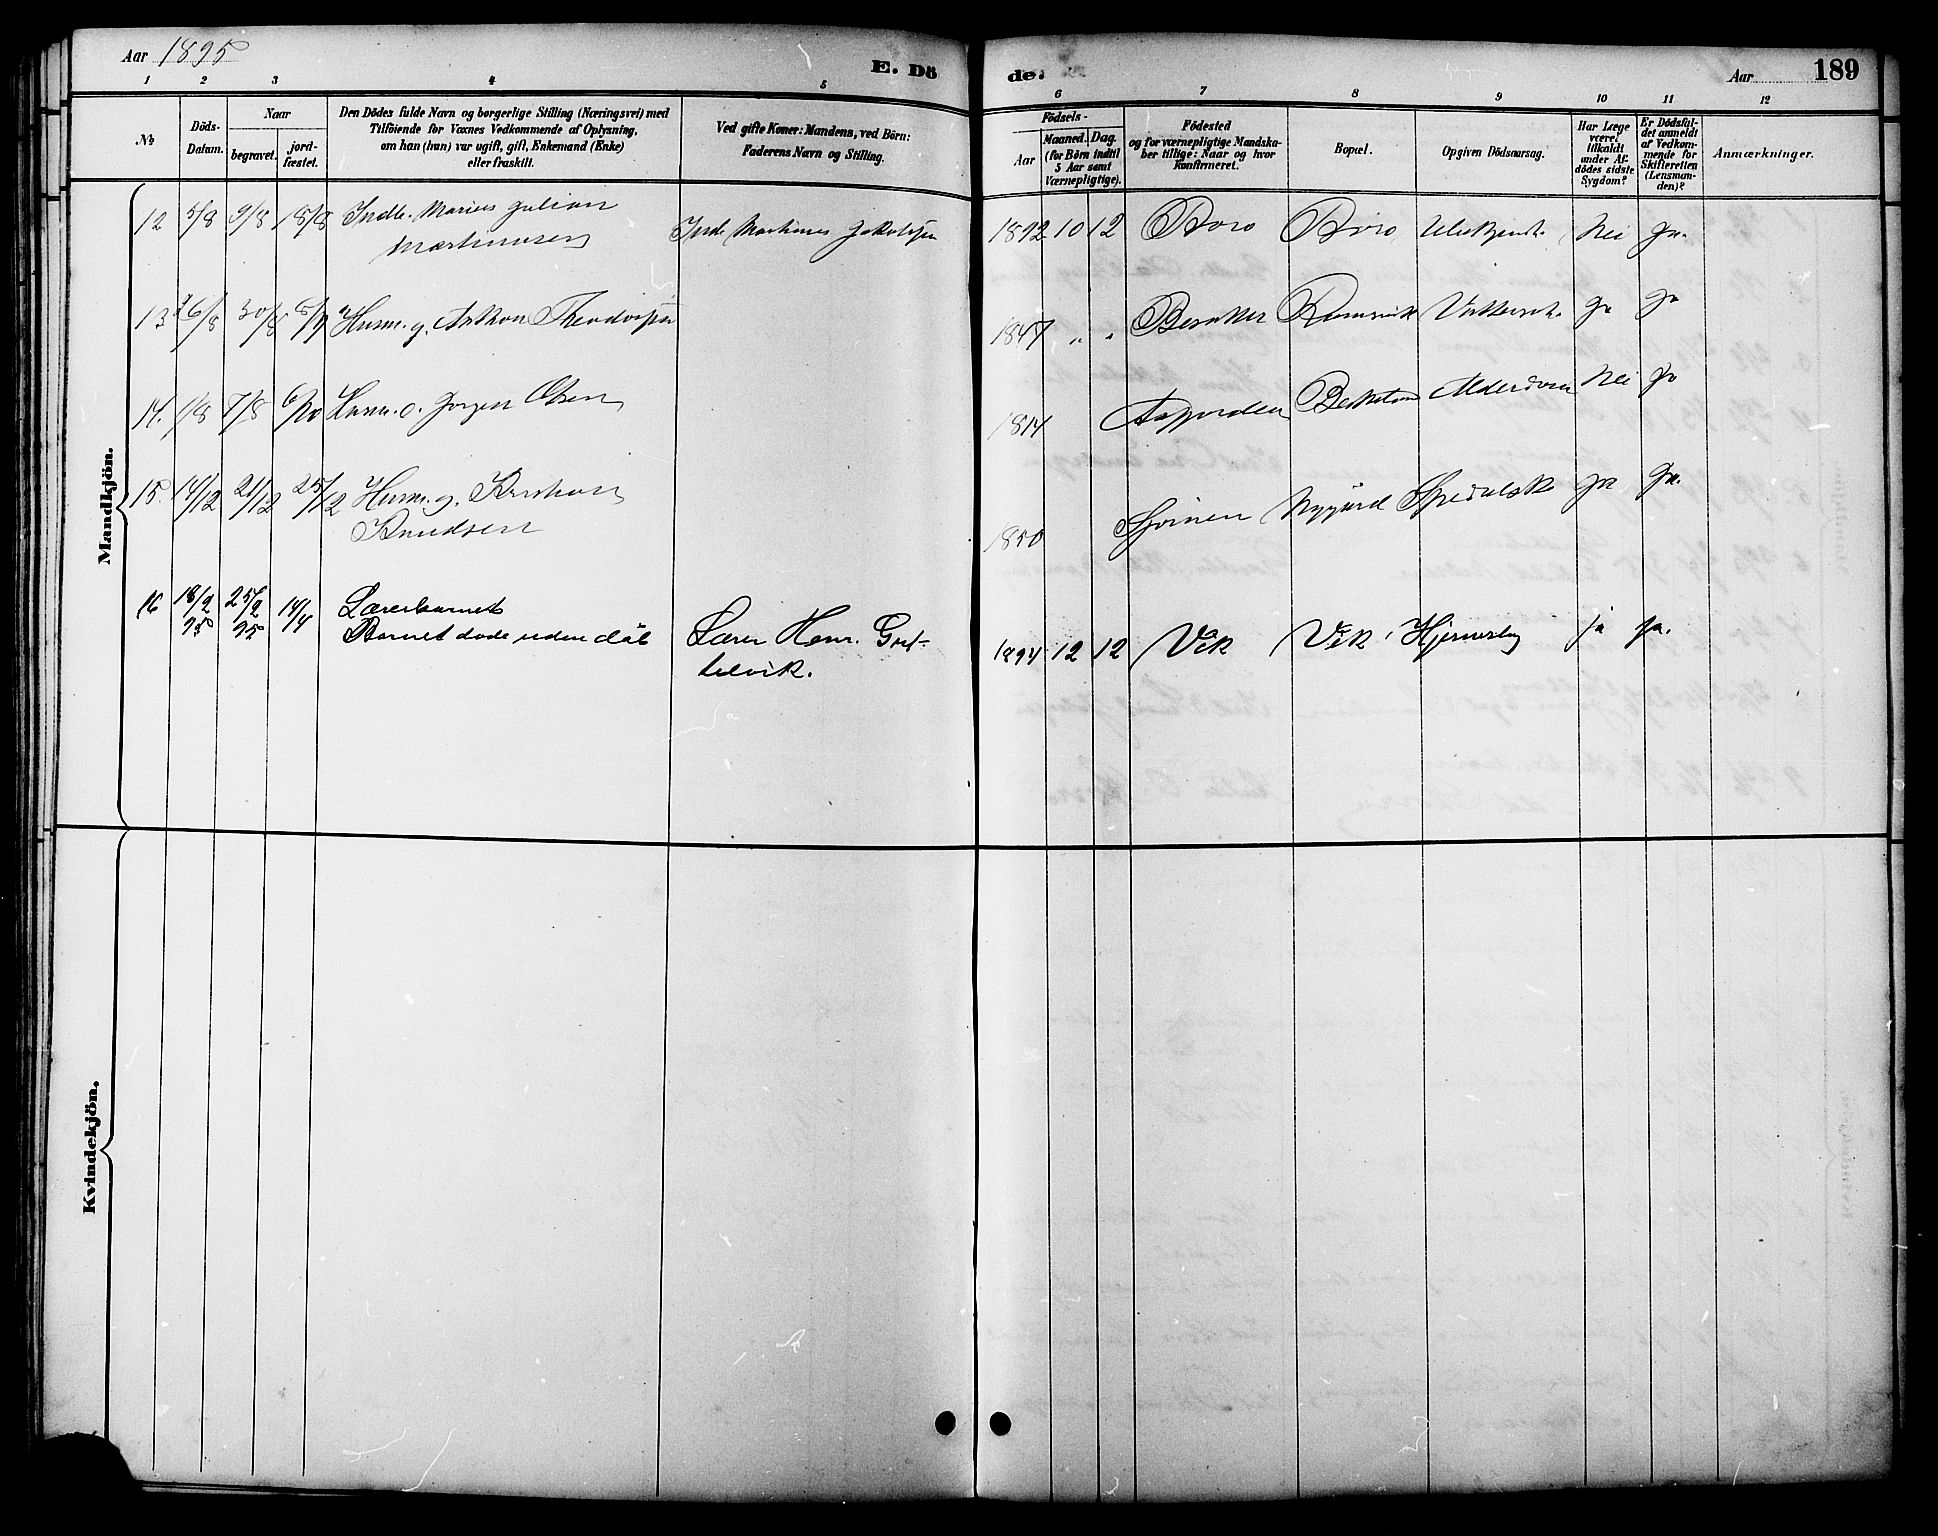 Aar 1895
E. Dö
de.
Aar
189
1 2 3 4 5 6 7 8 9 10 11 12
No.
Döds-
Datum.
Naar
begravet.
jord-
fæstet.
Den Dödes fulde Navn og borgerlige Stilling (Næringsvei) med
Tilföiende for Voxnes Vedkommende af Oplysning,
om han (hun) var ugift, gift, Enkemand (Enke)
eller fraskilt.
Ved gifte Koner: Mandens, ved Börn:
Faderens Navn og Stilling.
Födsels-
Aar
Maaned. Dag.
(for Börn indtil
5 Aar samt
Værnepligtige).
Födested
og for værnepligtige Mandska-
ber tillige: Naar og hvor
konfirmeret.
Bopæl.
Opgiven Dödsaarsag.
Har Læge
været
tilkaldt
under Af-
dödes sidste
Sygdom?
Er Dödsfal-
det anmeldt
af Vedkom-
mende for
Skifteretten
(Lensman-
den)?
Anmærkninger.
Mandkjön.
12 5/8 9/8 18/8 Indb. Marius Julian
Martinusen
Inds. Martinus Jakobsen 1892 10 12 Boro Boro Nei Ja.
13 26/8 30/8 Husm. g. Anthon Theodorsen 1847 " " Ja Ja
14. 1/8 7/8 6/10 Husm. e. Jørgen Olsen 1814 Alderdom Nei Ja
15. 14/12 21/12 25/12 Husm. g. Kristian
Knudsen
1850 Nygård Spedalsk Ja Ja.
16 18/2 95 25/2 95 14/4 Lærerbarnet
Barnet døde uden dåb
Lærer Hans. Grut-
telvik.
1894 12 12 Vik Vik Hjernesby ja ja.
Kvindekjön.